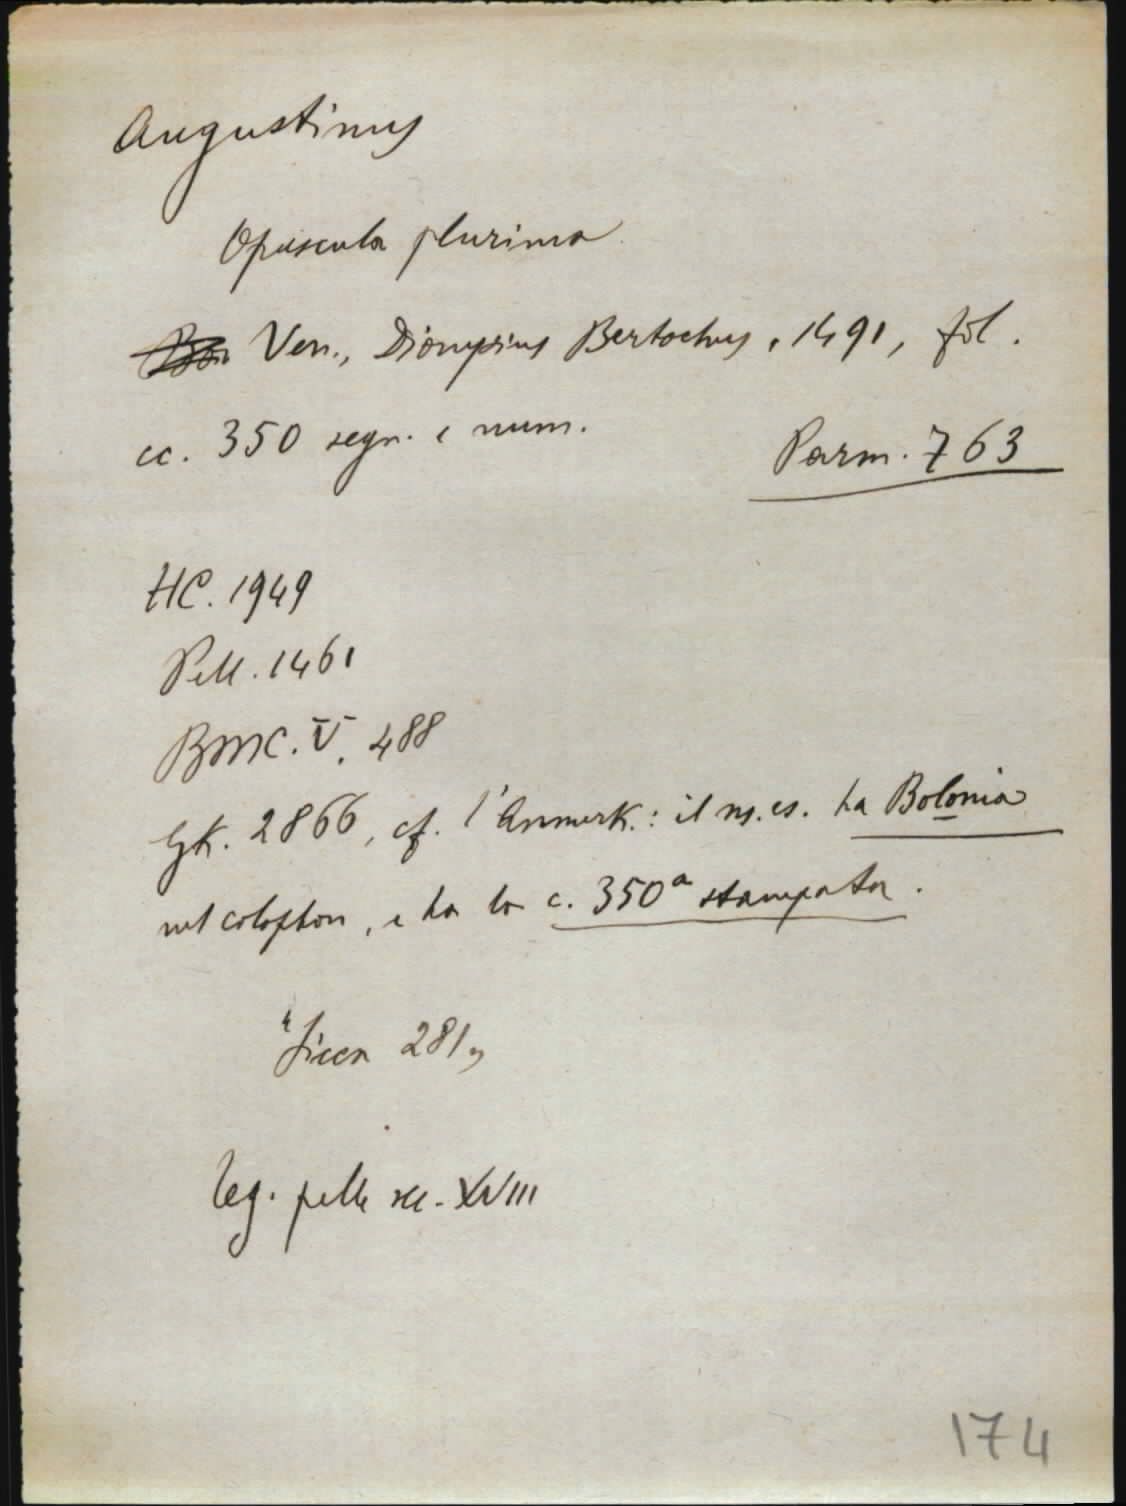 Augustinus
Opuscula plurima
Ven., Dionysius Bertochus, 1491, fol.
cc. 350 segn. e num.
Parm. 763
HC. 1949
Pell. 1461
BMC. V. 488
GK. 2866, cf. l'Anmerk.: il ns. es. ha Bolonia
nel colophon, e ha la c. 350a stampata.
"Sicca 281"
Leg. pelle sec. XVIII
174